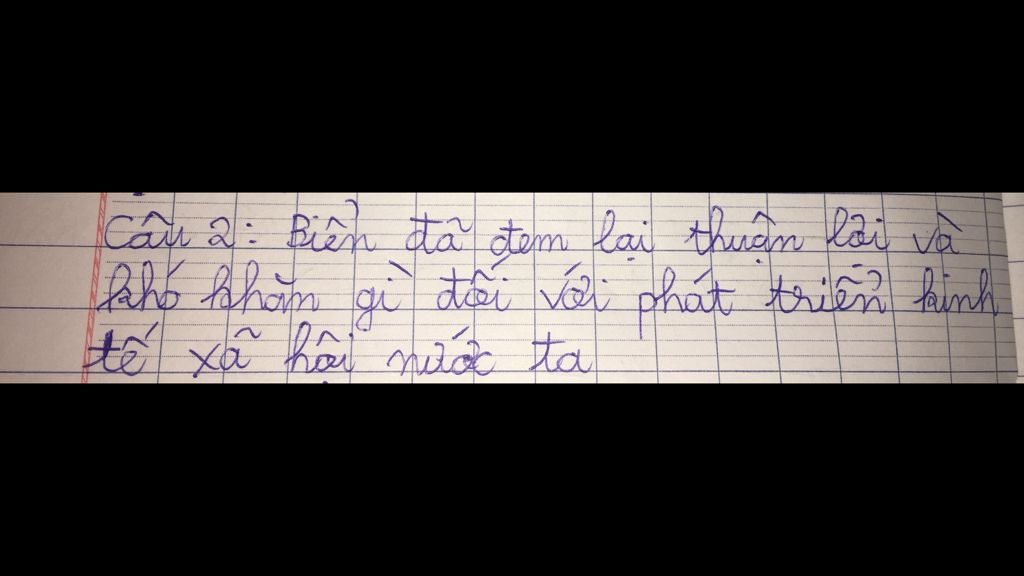 Câu 2: Biển đã đem lại thuận lời và
khó khăn gì đối với phát triển kinh
tế xã hội nước ta